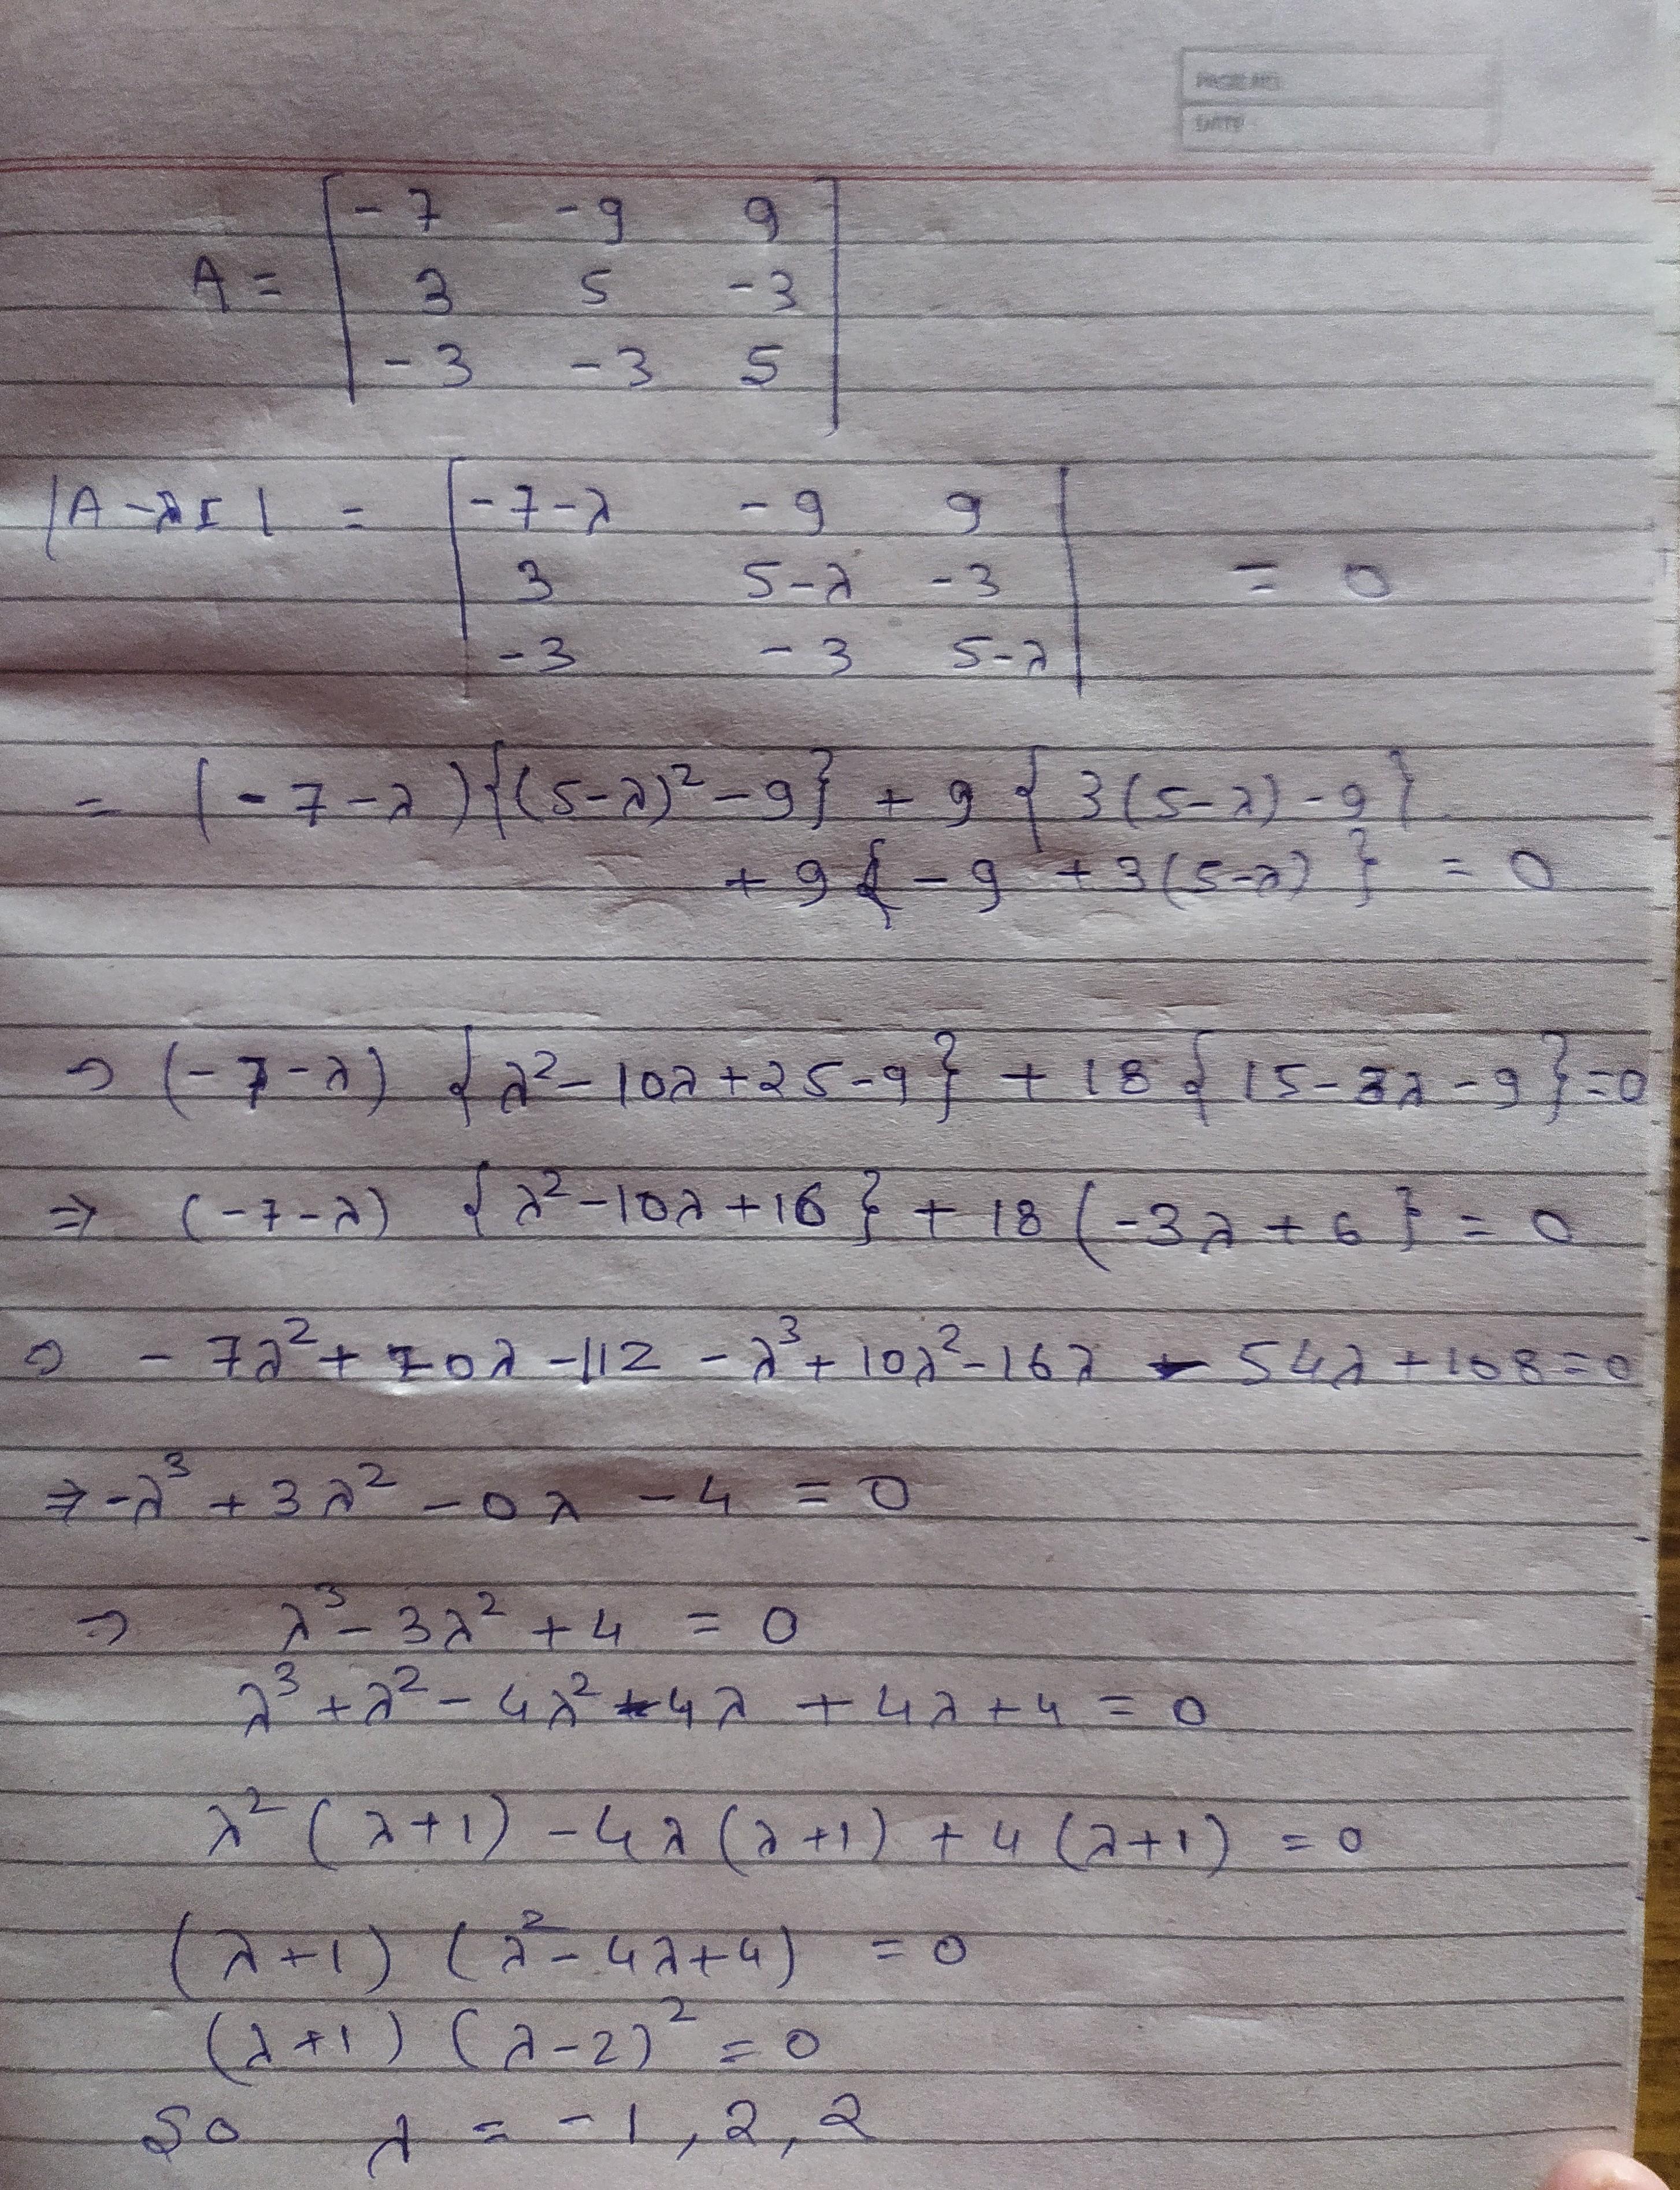 PAGE NO.
DATE
-7 -9 9
A = 3 5 -3
-3 -3 5
-7-λ -9 9
|A-λI| = 3 5-λ -3 = 0
-3 -3 5-λ
= (-7-λ){(5-λ)²-9} + 9 {3(5-λ)-9}
+ 9{-9 +3(5-λ)} = 0
⇒ (-7-λ) {λ²-10λ+25-9} + 18{15-3λ-9}=0
⇒ (-7-λ) {λ²-10λ+16} + 18(-3λ+6} = 0
⇒ -7λ²+70λ-112-λ³+10λ²-16λ-54λ+108=0
⇒ -λ³+3λ²-0λ-4 = 0
⇒ λ³-3λ²+4 = 0
λ³+λ²-4λ²-4λ+4λ+4=0
λ²(λ+1)-4λ(λ+1)+4(λ+1)=0
(λ+1)(λ²-4λ+4) =0
(λ+1)(λ-2)²=0
So λ = -1, 2, 2